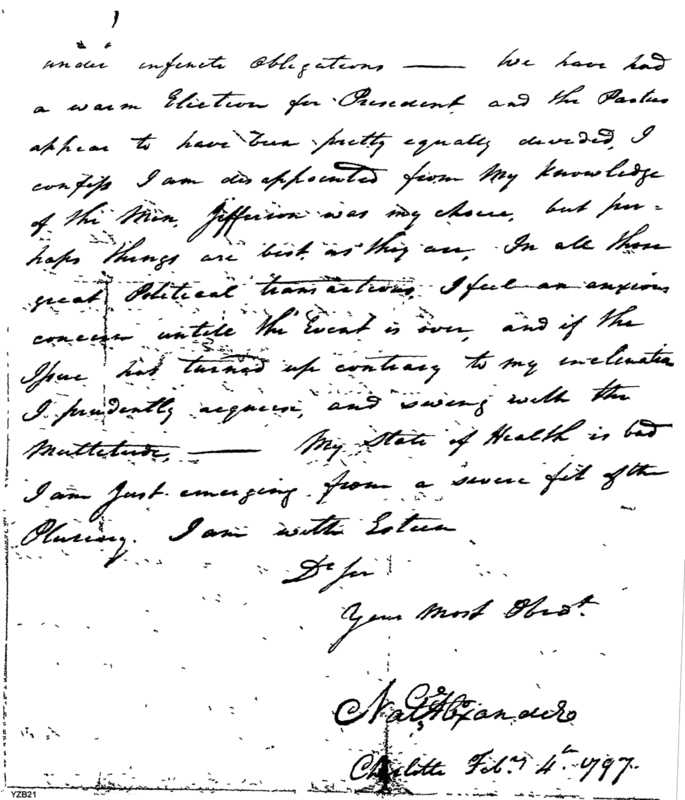 under infinite Obligations —— We have had
a warm Election for President, and the Parties
appear to have been pretty equally devided, I
confess I am disappointed from My Knowledge
of the Men, Jefferson was my choice, but per=
haps things are best as they are, In all those
great Political transactions, I feel an anxious
concern untill the Event is over, and if the
Issue has turned up contrary to my inclination
I prudently aquiesce, and swing with the
Multitude, —— My State of Health is bad
I am Just emerging from a severe fit of the
Plurisy. I am with Esteem
Dr Sir
Your Most Obedt.
Nat Alexander
Charlotte Feby 4th 1797.
YZB21